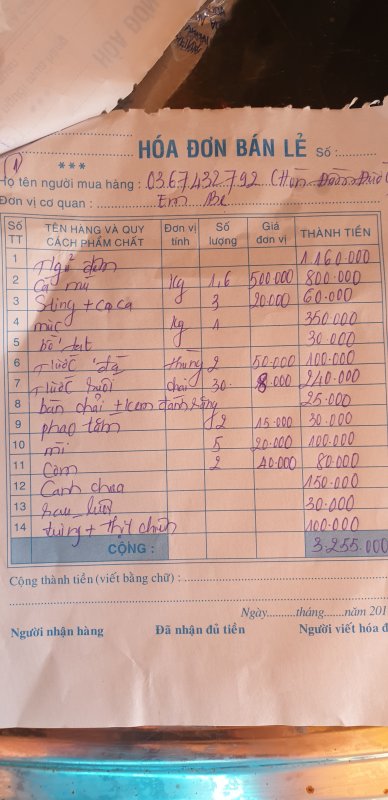 HÓA ĐƠN BÁN LẺ Số :
(1) ***
Họ tên người mua hàng : 0367432792 (Hòn
Đơn vị cơ quan : Em Bé
Số TT TÊN HÀNG VÀ QUY CÁCH PHẨM CHẤT Đơn vị tính Số lượng Giá đơn vị THÀNH TIỀN
1 Ngủ đêm 1.160.000
2 Cá mú Kg 1,6 500.000 800.000
3 Sting + coca 3 20.000 60.000
4 mực kg 1 350.000
5 30.000
6 nước đá thùng 2 50.000 100.000
7 nước suối chai 30. 8.000 240.000
8 bàn chải + kem đánh răng 25.000
9 phao tắm 2 15.000 30.000
10 mì 5 20.000 100.000
11 Cơm 2 40.000 80.000
12 Canh chua 150.000
13 rau 30.000
14 trứng + thịt 100.000
CỘNG : 3.255.000
Cộng thành tiền (viết bằng chữ) :
Ngày.........tháng.......năm 201
Người nhận hàng Đã nhận đủ tiền Người viết hóa đ